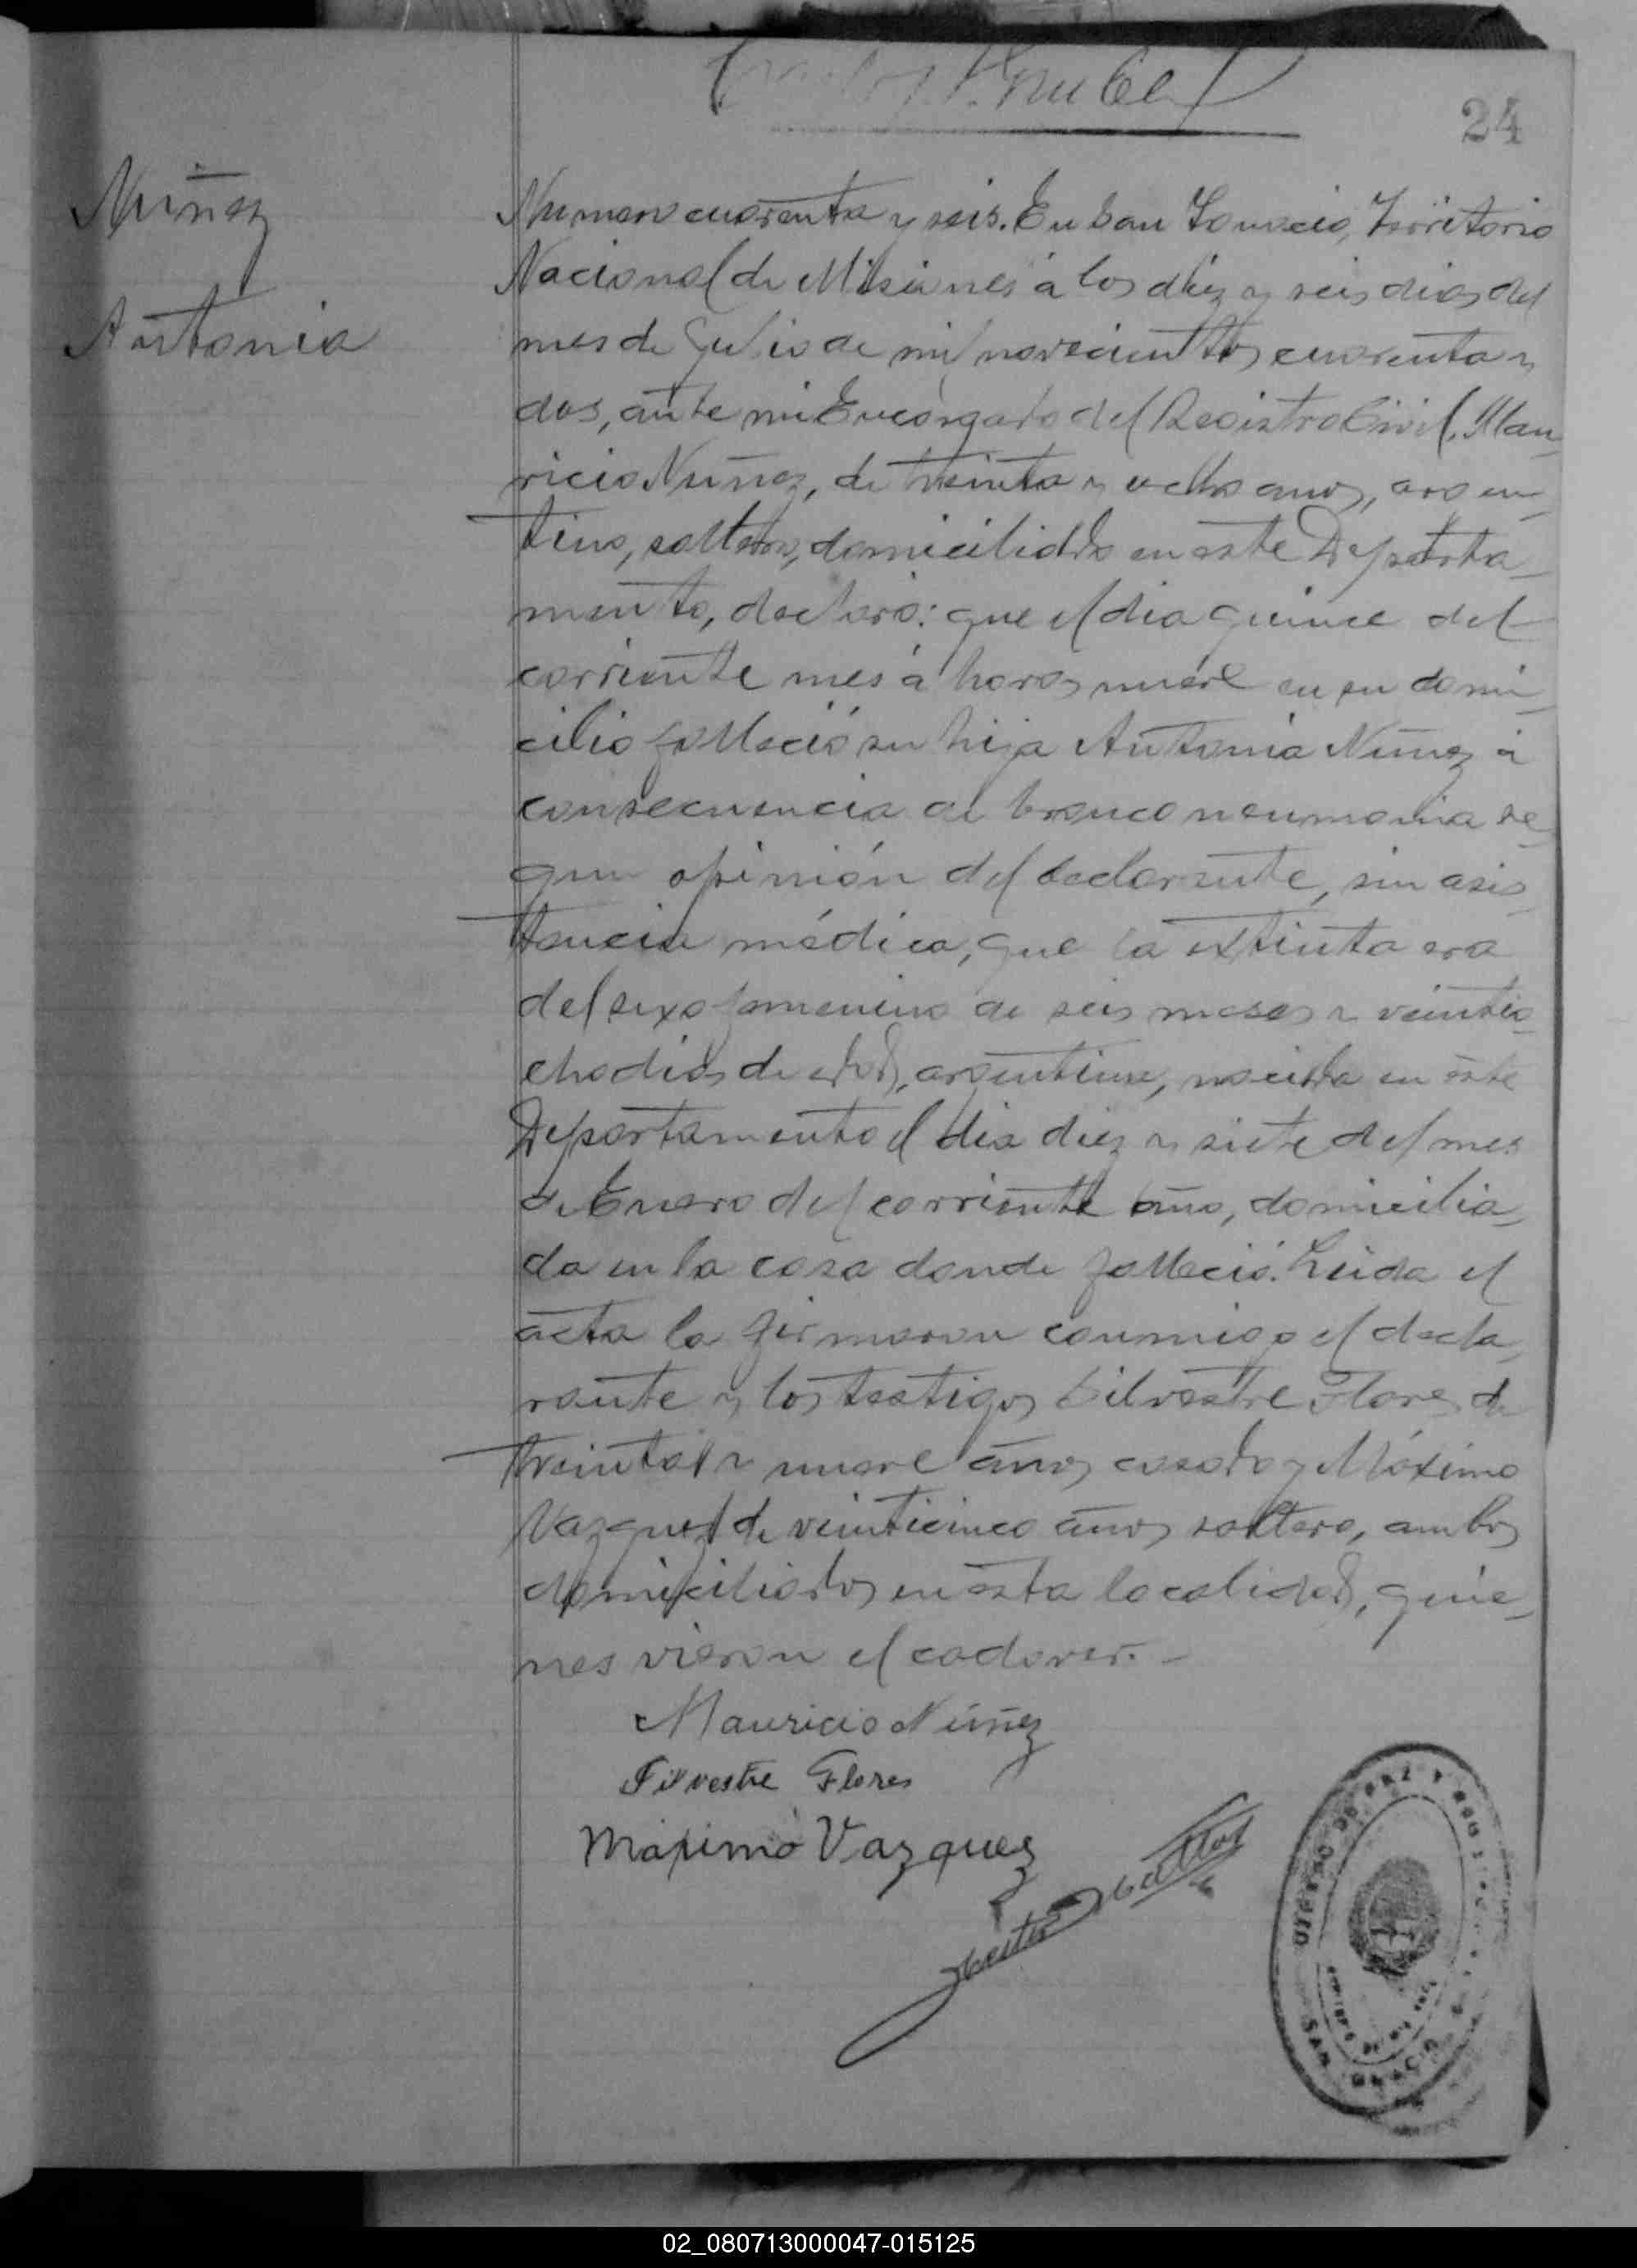 24
Núñez
Antonia
Numero cuarenta y seis. En San Ignacio, Territorio
Nacional de Misiones á los diez y seis dias del
mes de Julio de mil novecientos cuarenta y
dos, ante mi Encargado del Registro Civil, Mau-
ricio Nuñez, de treinta y ocho años, argen-
tino, soltero, domiciliado en este Departa-
mento, declaró: que el dia quince del
corriente mes á horas nueve en su domi-
cilio falleció su hija Antonia Nuñez á
consecuencia de bronco neumonia se-
gun opinión del declarante, sin asis-
tencia médica, que la extinta era
del sexo femenino de seis meses y veintio-
cho dias de edad, argentina, nacida en este
Departamento el dia diez y siete del mes
de Enero del corriente año, domicilia-
da en la casa donde falleció. Leida el
acta la firmaron conmigo el decla-
rante y los testigos Silvestre Flores de
treinta y nueve años, casado y Máximo
Vazquez de veinticinco años soltero, ambos
domiciliados en esta localidad, quie-
nes vieron el cadaver.-
Mauricio Núñez
Silvestre Flores
Maximo Vazquez
SAN IGNACIO
02_080713000047-015125